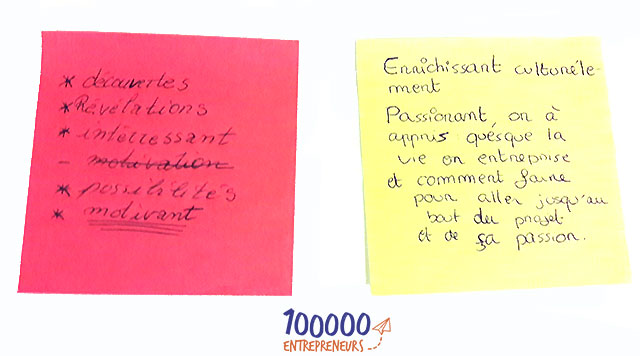 * découvertes
* Révélations
* intéressant
- motivation
* possibilités
* motivant
Enrichissant culturéle-
ment
Passionant, on à
appris quesque la
vie en entreprise
et comment faire
pour aller jusqu'au
bout du projet
et de ça passion.
100000
ENTREPRENEURS